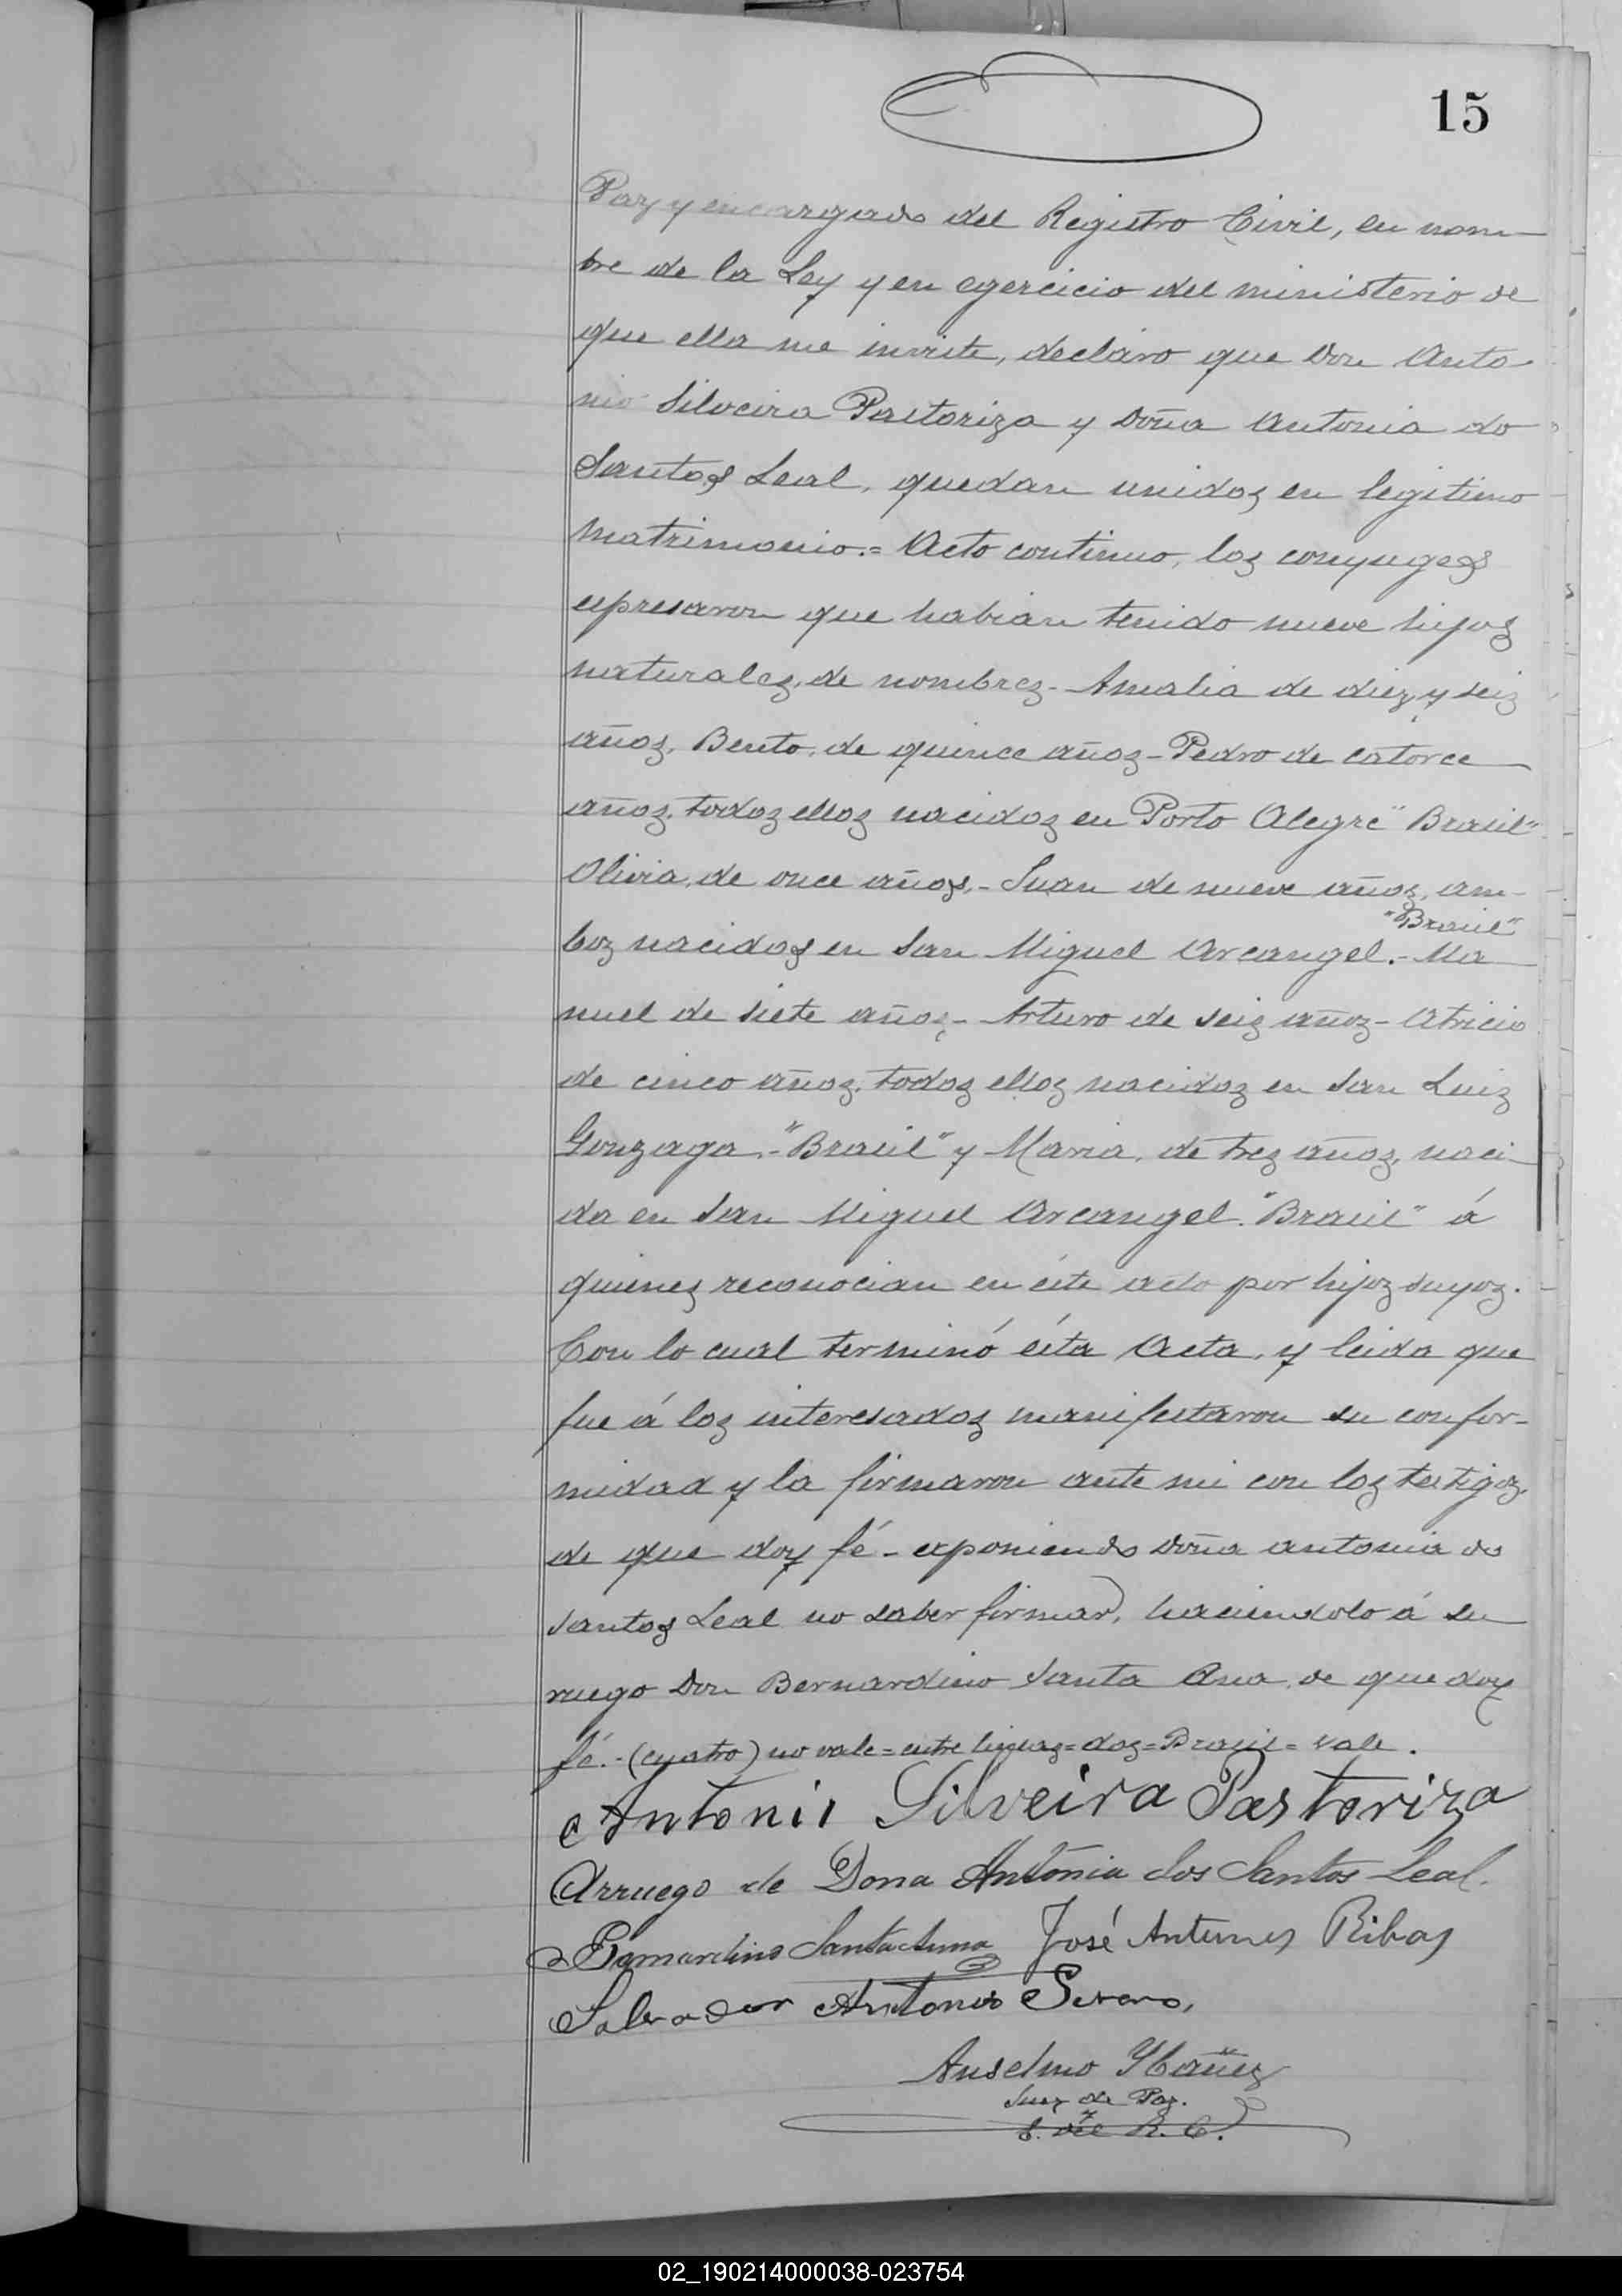 15
Paz y encargado del Registro Civil, en nom
bre de la Ley y en egercicio del ministerio de
que ella me inviste, declaro que Don Anto
nio Silveira Pastoriza y Doña Antonia do
Santos Leal, quedan unidos en legitimo
matrimonio.= Acto continuo, los conyuges
expresaron que habian tenido nueve hijos
naturales, de nombres - Amalia de diez y seis
años, Bento, de quince años - Pedro de catorce
años, todos ellos nacidos en Porto Alegre "Brasil"
Olivia, de once años, - Juan de nueve años, am-
"Brasil"
bos nacidos en San Miguel Arcangel. - Ma
nuel de siete años - Arturo de seis años - Atricio
de cinco años, todos ellos nacidos en San Luis
Gonzaga - "Brasil" y Maria, de tres años, naci-
da en San Miguel Arcangel. "Brasil" á
quienes reconocian en éste acto por hijos suyos.
Con lo cual terminó ésta Acta, y leida que
fue á los interesados manifestaron su confor-
midad y la firmaron ante mi con los testigos,
de que doy fé - exponiendo Doña Antonia do
Santos Leal no saber firmar, haciendolo á su
ruego Don Bernardino Santa Ana de que doy
fé. - (cuatro) no vale = entre lineas = dos = Brasil = vale.
Antonio Silveira Pastoriza
Arruego de Dona Antônia dos Santos Leal.
Bernardino Santa Anna José Antunes Ribas
Salvador Antonio Severo,
Anselmo Ybañez
Juez de Paz.
y
E. del R. C.
02_190214000038-023754